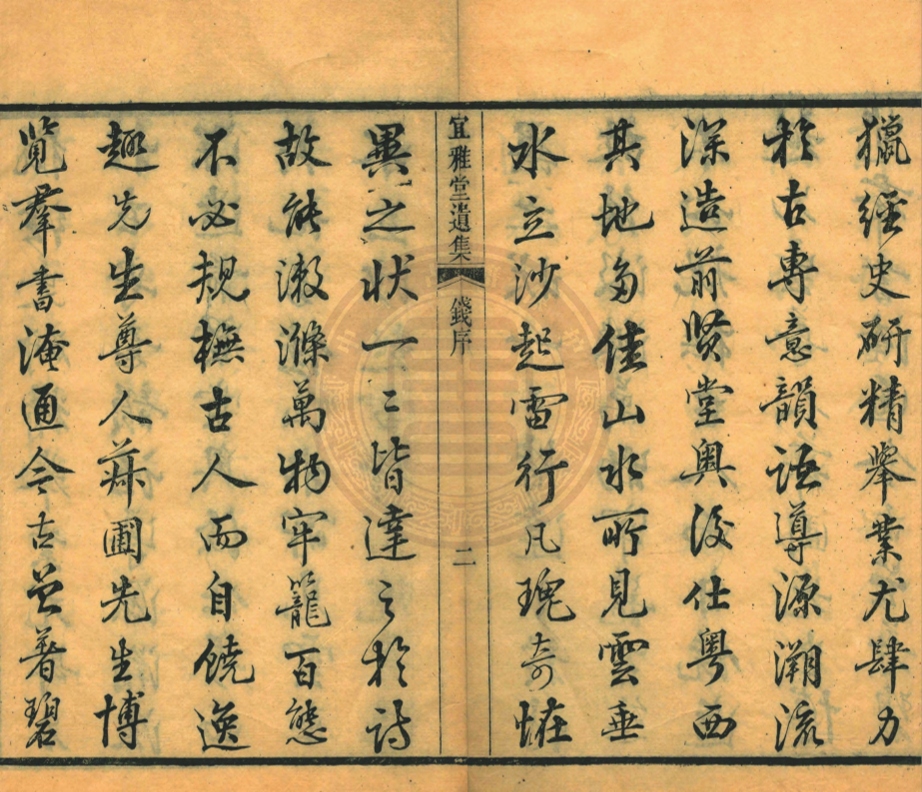 獵經史研精舉業尤肆力
於古專意韻語導源溯流
深造前賢堂奧後仕粵西
其地多佳山水所見雲垂
水立沙起雷行凡瑰奇恠
宜雅堂遺集 錢序 二
異之状一二皆達之於詩
故能漱滌萬物牢籠百態
不必規橅古人而自饒逸
趣先生尊人菻圃先生博
覽羣書淹通今古曾著碧